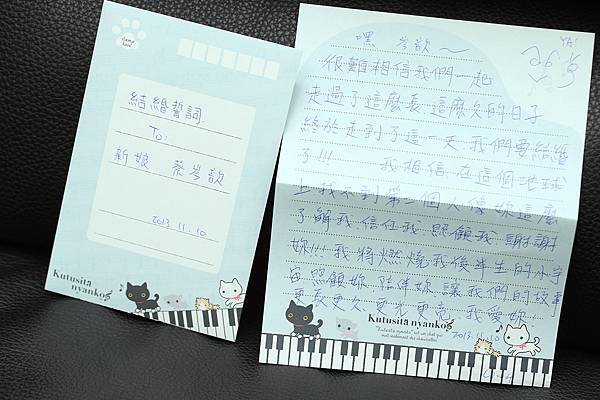 stamp here
結婚誓詞
To:
新娘 蔡岑歆
2013.11.10
Kutusita nyanko
嘿 岑歆~
YA!
很難相信我們一起
走過了這麼長.這麼久的日子
終於走到了這一天.我們要結婚
了!!! 我相信.在這個地球
上找不到第二個人像妳這麼
了解我.信任我.照顧我.謝謝
妳!!!我將燃燒我後半生的小宇
宙照顧妳.陪伴妳.讓我們的故事
更長更久.更光更亮.我愛妳
Kutusita nyanko
"Kutusita nyanko" est un chat qui
met réellement des chaussettes.
2013.11.10